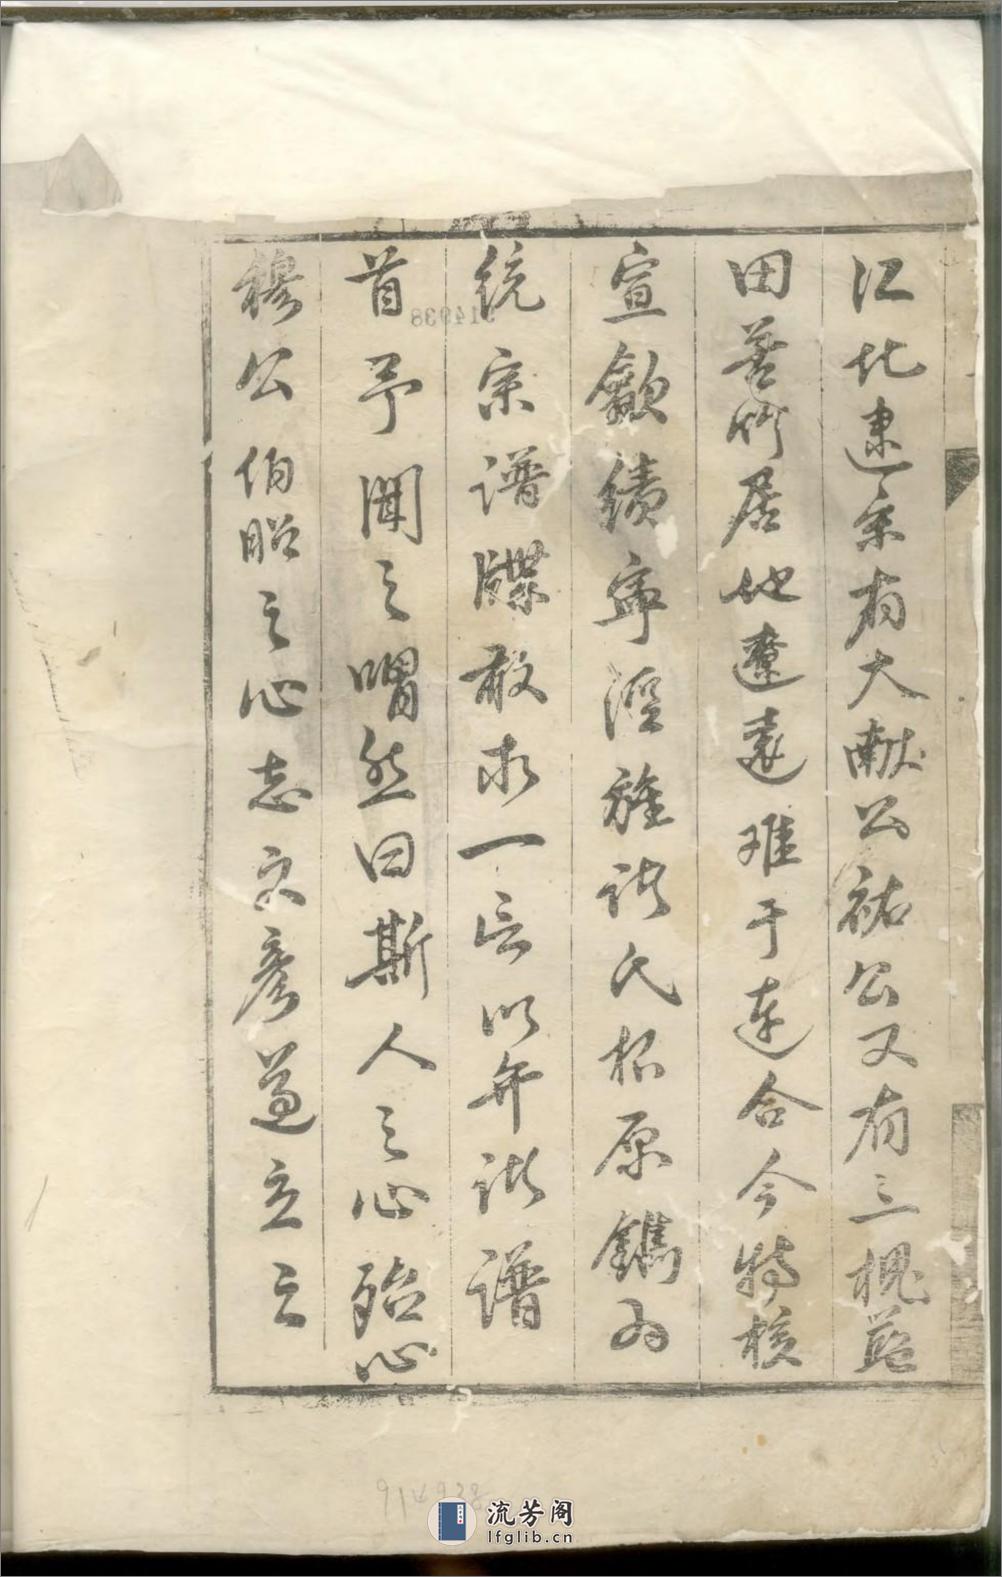 江北建業有大獻公祐公又有三槐藍
田善竹居地遼遠难于連合今特核
宣歙績寧涇旌諸氏招原鐫为
統宗譜牒敢求一言以弁諸譜
首予聞之喟然曰斯人之心殆心
穆公伯昭之心志文彦遵立之
914938
914938
流芳阁
lfglib.cn